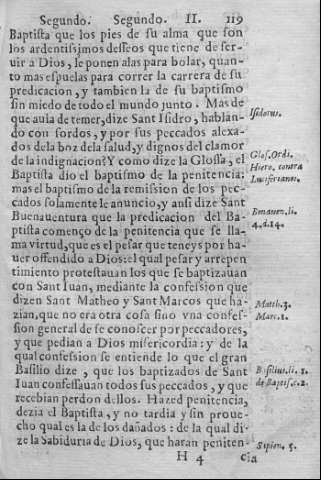 Segundo. Segundo. II. 119
Baptista que los pies de su alma que son
los ardentissimos desseos que tiene de ser-
uir a Dios, le ponen alas para bolar, quan-
to mas espuelas para correr la carrera de su
predicacion, y tambien la de su baptismo
sin miedo de todo el mundo junto. Mas de
que aula de temer, dize Sant Isidro, hablan-
do con sordos, y por sus peccados alexa-
dos de la boz de la salud, y dignos del clamor
de la indignacion? Y como dize la Glossa, el
Baptista dio el baptismo de la penitencia;
mas el baptismo de la remission de los pec-
cados solamente le anuncio, y ansi dize Sant
Buenauentura que la predicacion del Ba-
ptista començo de la penitencia que se lla-
ma virtud, que es el pesar que teneys por ha-
uer offendido a Dios: el qual pesar y arrepen
timiento protestauan los que se baptizauan
con Sant Iuan, mediante la confession que
dizen Sant Matheo y Sant Marcos que ha-
zian, que no era otra cosa sino vna confes-
sion general de se conoscer por peccadores,
y que pedian a Dios misericordia: y de la
qual confession se entiende lo que el gran
Basilio dize, que los baptizados de Sant
Iuan confessauan todos sus peccados, y que
recebian perdon dellos. Hazed penitencia,
dezia el Baptista, y no tardia y sin proue-
cho qual es la de los dañados: de la qual di-
ze la Sabiduria de Dios, que haran peniten-
H 4 cia
Isidorus.
Glos. Ordi.
Hiero. contra
Luciferianos.
Bonauen. li.
4. d. 14.
Matth. 3.
Marc. 1.
Basilius. li. 1.
de Baptis. c. 2.
Sapien. 5.